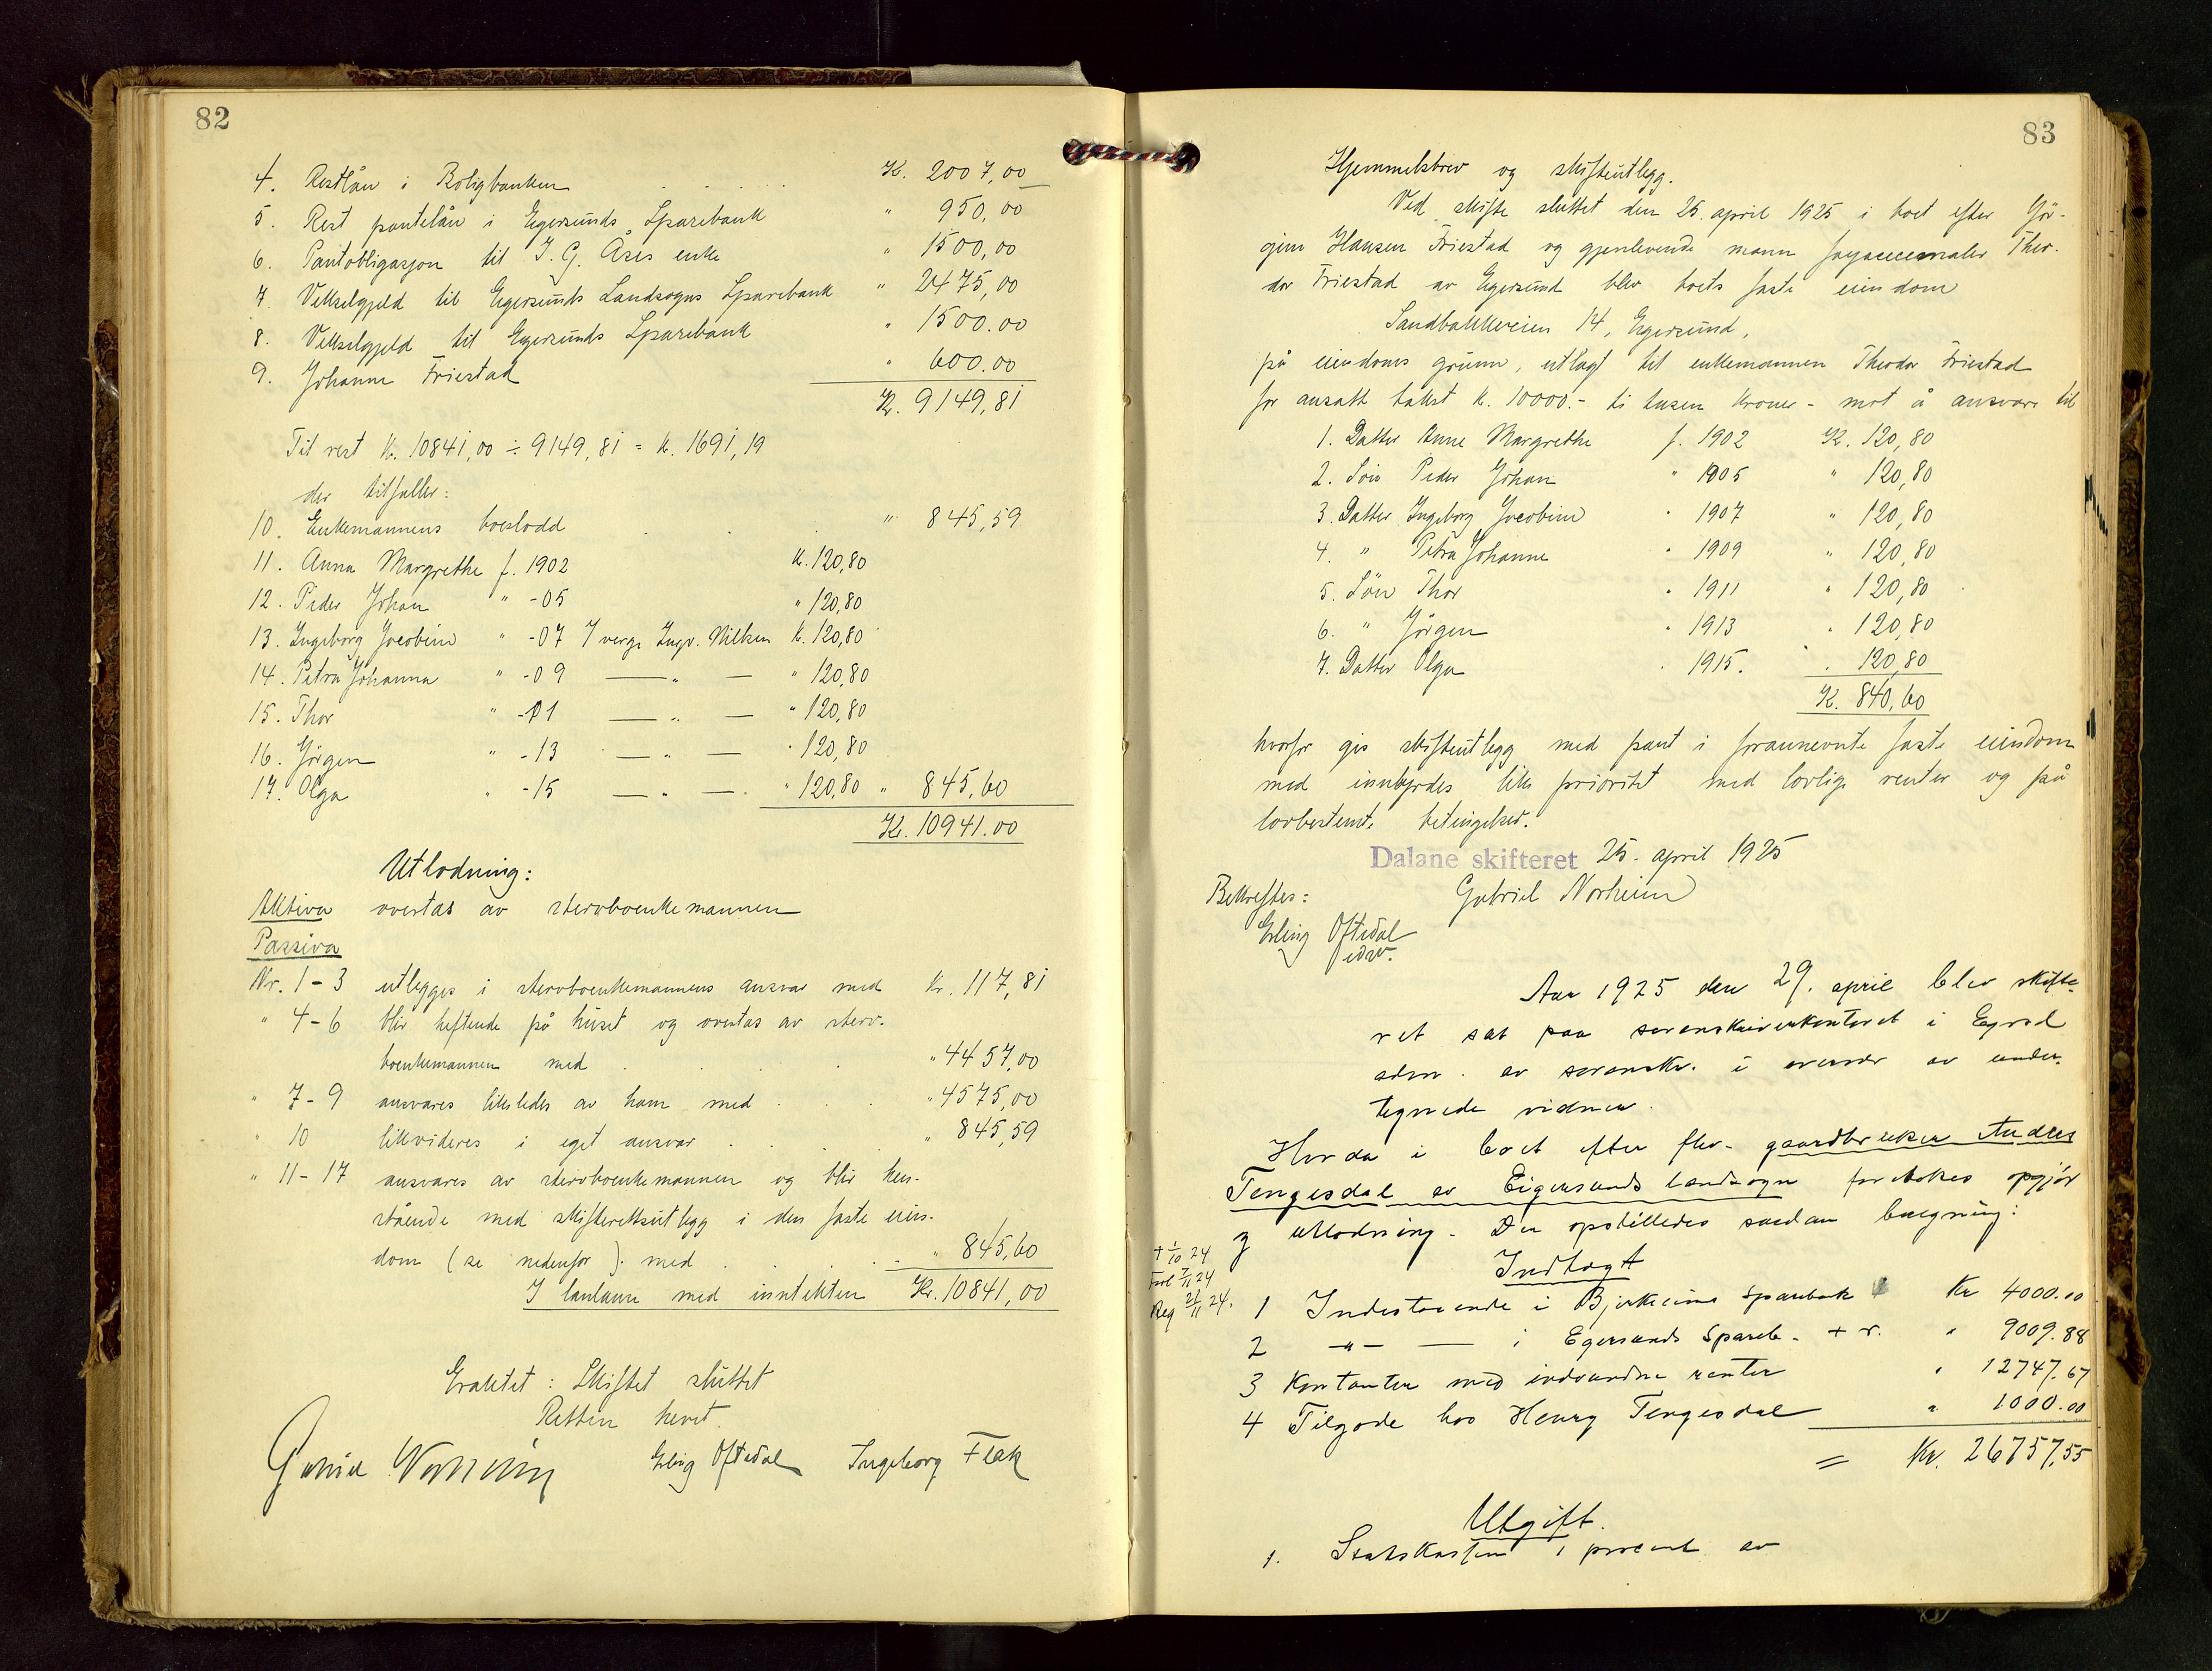 82
4. Restlån i Boligbanken . . . . K. 2007,00
5. Rest pantelån i Egersunds Sparebank " 950,00
6. Pantobligasjon til J. G. Åses enke " 1500,00
7. Vekselgjeld til Egersunds Landsogns Sparebank " 2475,00
8. Vekselgjeld til Egersunds Sparebank " 1500.00
9. Johanne Friestad " 600.00
K. 9149,81
Til rest K. 10841,00 ÷ 9149,81 = K. 1691,19
der tilfaller:
10. Enkemannens boeslodd . . " 845,59
11. Anna Margrethe f. 1902 K. 120,80
12. Peder Johan " -05 " 120,80
13. Ingeborg Jocobine " -07 / verge Ingv. Nilsen K. 120,80
14. Petra Johanna " -09 — " — " 120,80
15. Thor " -11 — " — " 120,80
16. Jörgen " -13 — " — " 120,80
17. Olga " -15 — " — " 120,80 " 845,60
Kr. 10941.00
Utlodning:
Aktiva overtas av stervboenkemannen
Passiva
Nr. 1-3 utlegges i stervboenkemannens ansvar med Kr. 117,81
" 4-6 blir heftende på huset og overtas av sterv-
boenkemannen med . . . " 4457,00
" 7-9 ansvares likeledes av ham med . . " 4575,00
" 10 likvideres i eget ansvar . . " 845,59
" 11-17 ansvares av stervboenkemannen og blir hen-
stående med skifterettsutlegg i den faste eien-
dom (se nedenfor) med . . . . " 845,60
I balanse med inntekten Kr. 10841,00
Eraktet: Skiftet sluttet
Retten hevet.
Gabriel Norheim Erling Oftedal Ingeborg Flak
83
Hjemmelsbrev og skifteutlegg.
Ved skifte sluttet den 25. april 1925 i boet efter Jör-
gine Hansen Friestad og gjenlevende mann fayancemaler Theo-
dor Friestad av Egersund blev boets faste eiendom
Sandbakkveien 14, Egersund,
på eiendoms grunn, utlagt til enkemannen Theodor Friestad
for ansatt takst k. 10000.- ti tusen kroner - mot å ansvare til
1. Datter Anne Margrethe f. 1902 K. 120,80
2. Sön Peder Johan " 1905 " 120,80
3. Datter Ingeborg Jocobine " 1907 " 120,80
4. " Petra Johanne " 1909 " 120,80
5. Sön Thor " 1911 " 120,80
6. " Jörgen " 1913 " 120,80
7. Datter Olga " 1915. " 120,80
K. 840,60
hvorfor gis skifteutlegg med pant i forannevnte faste eiendom
med innbyrdes like prioritet med lovlige renter og på
lovbestemte betingelser.
Dalane skifteret 25. april 1925
Bekreftes: Gabriel Norheim
Erling Oftedal
edsv.
Aar 1925 den 29. april blev skifte-
ret sat paa sorenskriverkontoret i Egrsd
adm. av sorenskr. i overvær av under-
tegnede vidner.
Hvorda i boet efter fhv. gaardbruker Andres
Tengesdal av Eigersunds landsogn foretokes opgjör
og utlodning. Der opstilledes saadan beregning:
† 1/10 24
Forl 7/11 24
Reg 21/11 24.
Indtægt
1 Indestaaende i Bjerkreims Sparebank Kr 4000.00
2 -"- — i Egersunds Spareb. + r. " 9009.88
3 Kontanter med indvundne renter " 12747.67
4 Tilgode hos Henry Tengesdal " 1000.00
= Kr. 26757,55
Utgift.
1. Statskassen 1 procent av